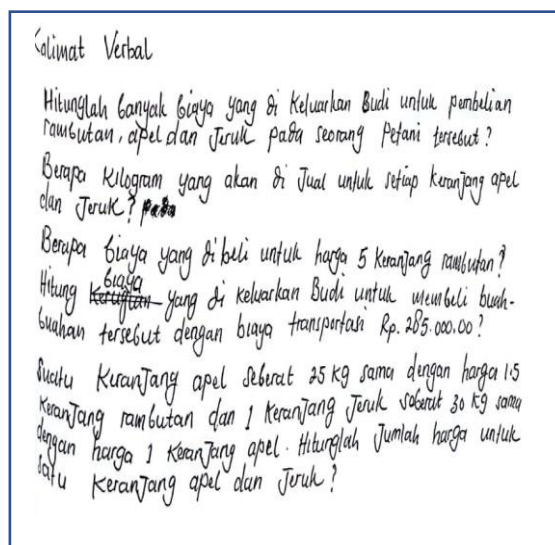 Kalimat Verbal
Hitunglah banyak biaya yang di keluarkan Budi untuk pembelian
rambutan, apel dan Jeruk pada seorang Petani tersebut?
Berapa Kilogram yang akan di Jual untuk setiap keranjang apel
dan Jeruk? pada
Berapa biaya yang dibeli untuk harga 5 keranjang rambutan?
biaya
Hitung kerugian yang di keluarkan Budi untuk membeli buah-
buahan tersebut dengan biaya transportasi Rp. 285.000.00?
Suatu Keranjang apel seberat 25 kg sama dengan harga 1.5
keranjang rambutan dan 1 keranjang Jeruk seberat 30 kg sama
dengan harga 1 keranjang apel. Hitunglah Jumlah harga untuk
satu keranjang apel dan Jeruk?